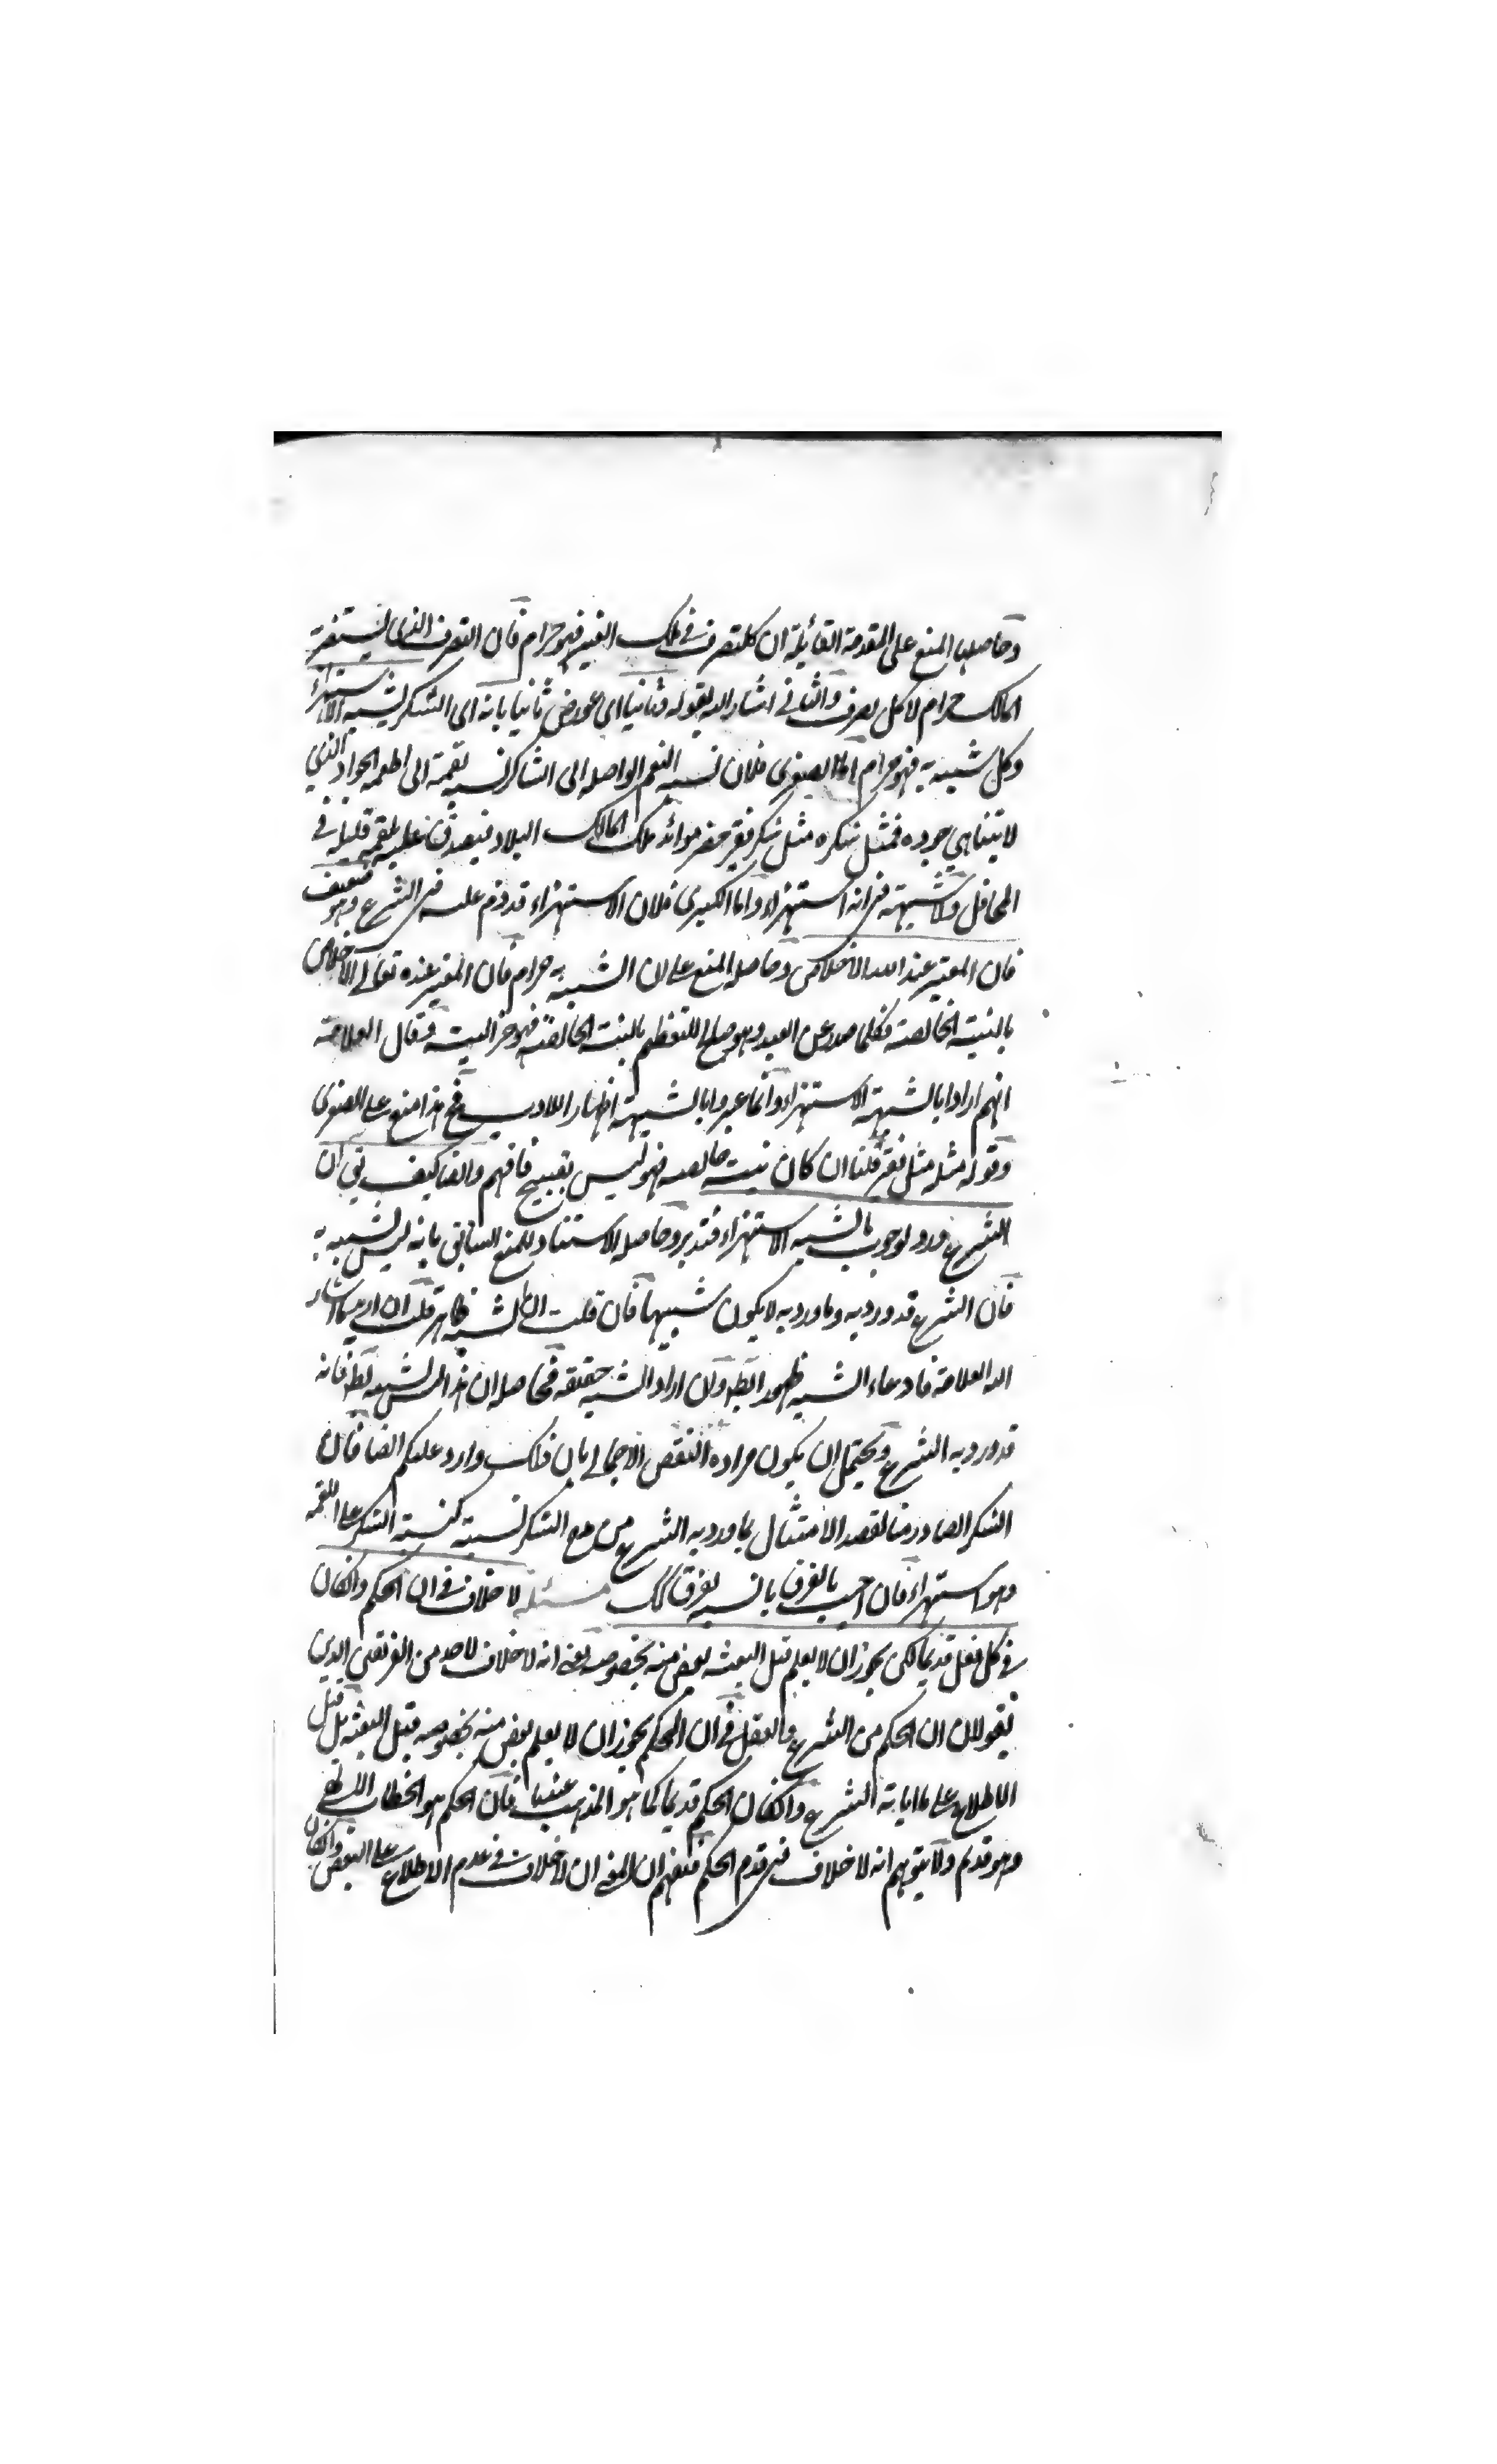 وحاصلها المنع على المقدمة القائلة ان كلتصرف في ملك الغير فهو حرام فان التصرف الذى يستضر به
المالك حرام لا كل تصرف والثاني اشار اليه بقوله وثانيا اى عورض ثانيا بانه اى الشكر يشبه الاستهزاء
وكل شبيه به فهو حرام اما الصغرى فلان نسبة النعم الواصله الى الشاكر نسبة لقمة الى اطعمه الجواد الذي
لا يتناهي جوده فمثل شكره مثل شكر فقير حضر موائد ملك ممالك البلاد فيتصدق عليه بلقمة قليلة في
المحافل ولا شبهة في انه استهزاء واما الكبرى فلان الاستهزاء قد ذم عليه في الشرع وهو ضعيف
فان المعتبر عند الله الاخلاص وحاصله المنع على ان الشبيه به حرام فان المعتبر عنده تعالى الاخلاص
بالنية الخالصة فكلما صدر عن العبد وهو صلح للتعظيم بالنية الخالصة فهو خير البتة وقال العلامة
انهم ارادوا بالشبهة الاستهزاء وانما عبروا بالشبهة اظهارا للادب فح هذا منع على الصغرى
وقوله مثله مثل فقير قلنا ان كان نيته خالصه فهو ليس بقبيح فافهم وايضا كيف يق ان
الشرع ورد لوجوب بالشبيه الاستهزاء فتدبر وحاصله الاستناد للمنع السابق بانه ليس لشبيه به
فان الشرع قد ورد به وما ورد به لا يكون شبيها فان قلت الشبه ظاهر قلت ان اريد ما اشار
اليه العلامة فادعاء الشبه ظهور البطلان وان اراد الشبه حقيقه فحاصله ان هذا ليس لشبيه فانه
قد ورد به الشرع ويحتمل ان يكون مراده النقض الاجمالي بان ذلك وارد عليكم ايضا فان
الشكر الصادر منا لقصد الامتثال بما ورد به الشرع من مع الشكر نسبته كنسبة الشكر على اللقمه
وهو استهزاء فان اجيب بالفرق بالنسبه يفرق كك مسئلة لا خلاف في ان الحكم وانكان
في كل فعل قديما لكن يجوز ان لا يعلم قبل البعثه بعض منه بخصوصه يعني انه لا خلاف لاحد من الفريقين الذين
يقولان ان الحكم من الشرع والعقل في ان الحكم يجوز ان لا يعلم بعض منه بخصوصه قبل البعثه بل قبل
الاطلاع على ما ابانه الشرع وانكان الحكم قديما كما هو المذهب عندنا فان الحكم هو الخطاب
وهو قديم ولا يتوهم انه لا خلاف في قدم الحكم فيفهم ان المعنى ان لا خلاف في عدم الاطلاع على البعض وانكان